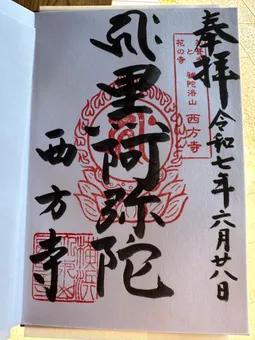 奉拝
令和七年六月廿八日
と
花の寺
補陀洛山 西方寺
黒阿弥陀
西方寺
横浜